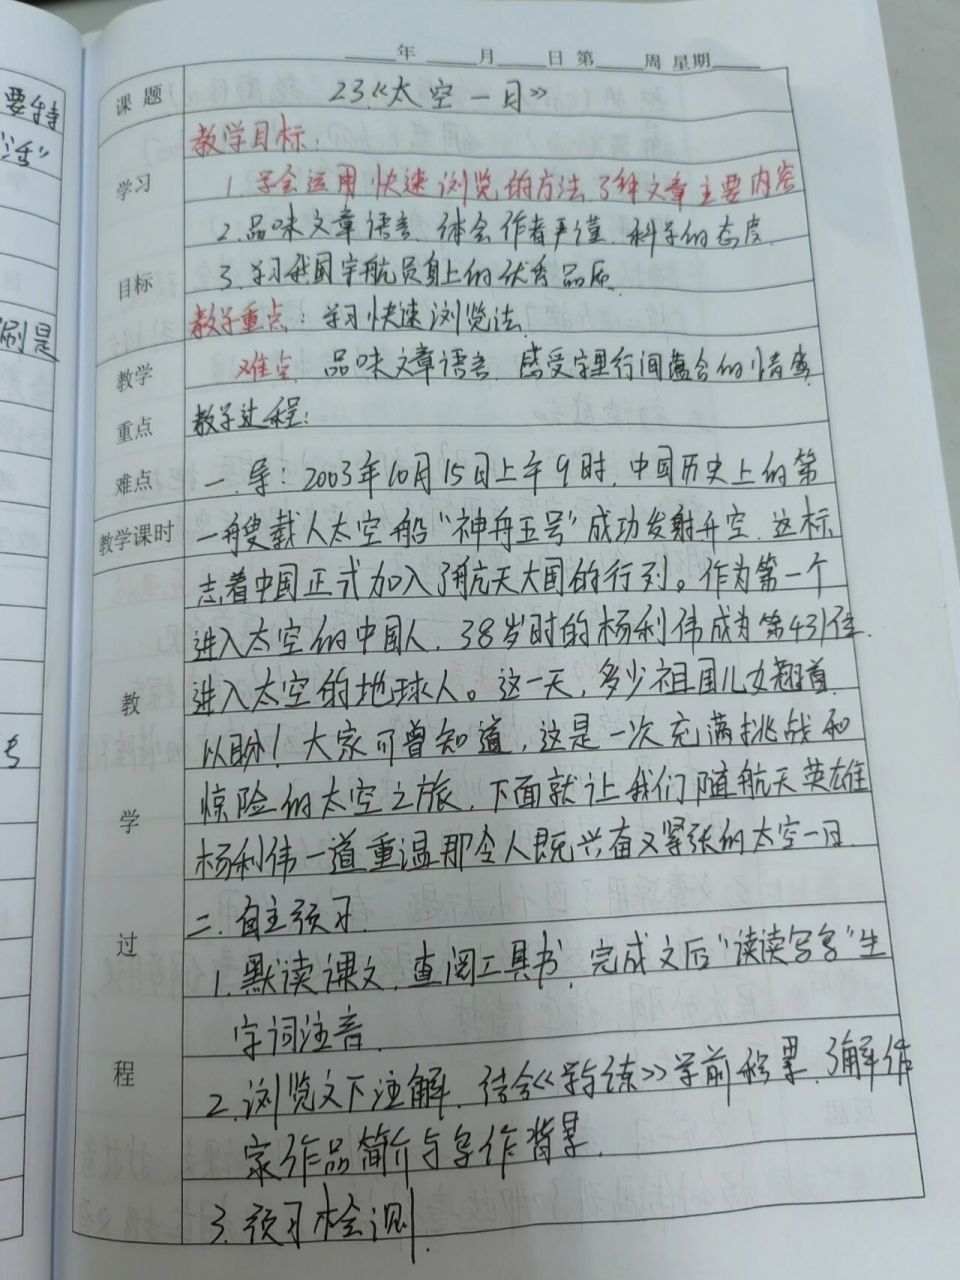 ____年____月____日 第____周 星期____
要特
活"
刷是
课题 23《太空一日》
学习
目标
教学
重点
难点
教学课时
教
学
过
程
教学目标:
1. 学会运用快速浏览的方法,了解文章主要内容
2. 品味文章语言,体会作者严谨、科学的态度
3. 学习我国宇航员身上的优秀品质
教学重点:学习快速浏览法
难点 品味文章语言,感受字里行间蕴含的情感
教学过程:
一. 导:2003年10月15日上午9时,中国历史上的第
一艘载人太空船“神舟五号”成功发射升空,这标
志着中国正式加入了航天大国的行列。作为第一个
进入太空的中国人,38岁时的杨利伟成为第431位
进入太空的地球人。这一天,多少祖国儿女翘首
以盼!大家可曾知道,这是一次充满挑战和
惊险的太空之旅,下面就让我们随航天英雄
杨利伟一道重温那令人既兴奋又紧张的太空一日.
二. 自主预习.
1. 默读课文,查阅工具书,完成文后“读读写写”生
字词注音.
2. 浏览文下注解,结合《学练》学前积累,了解作
家作品简介与写作背景.
3. 预习检测.